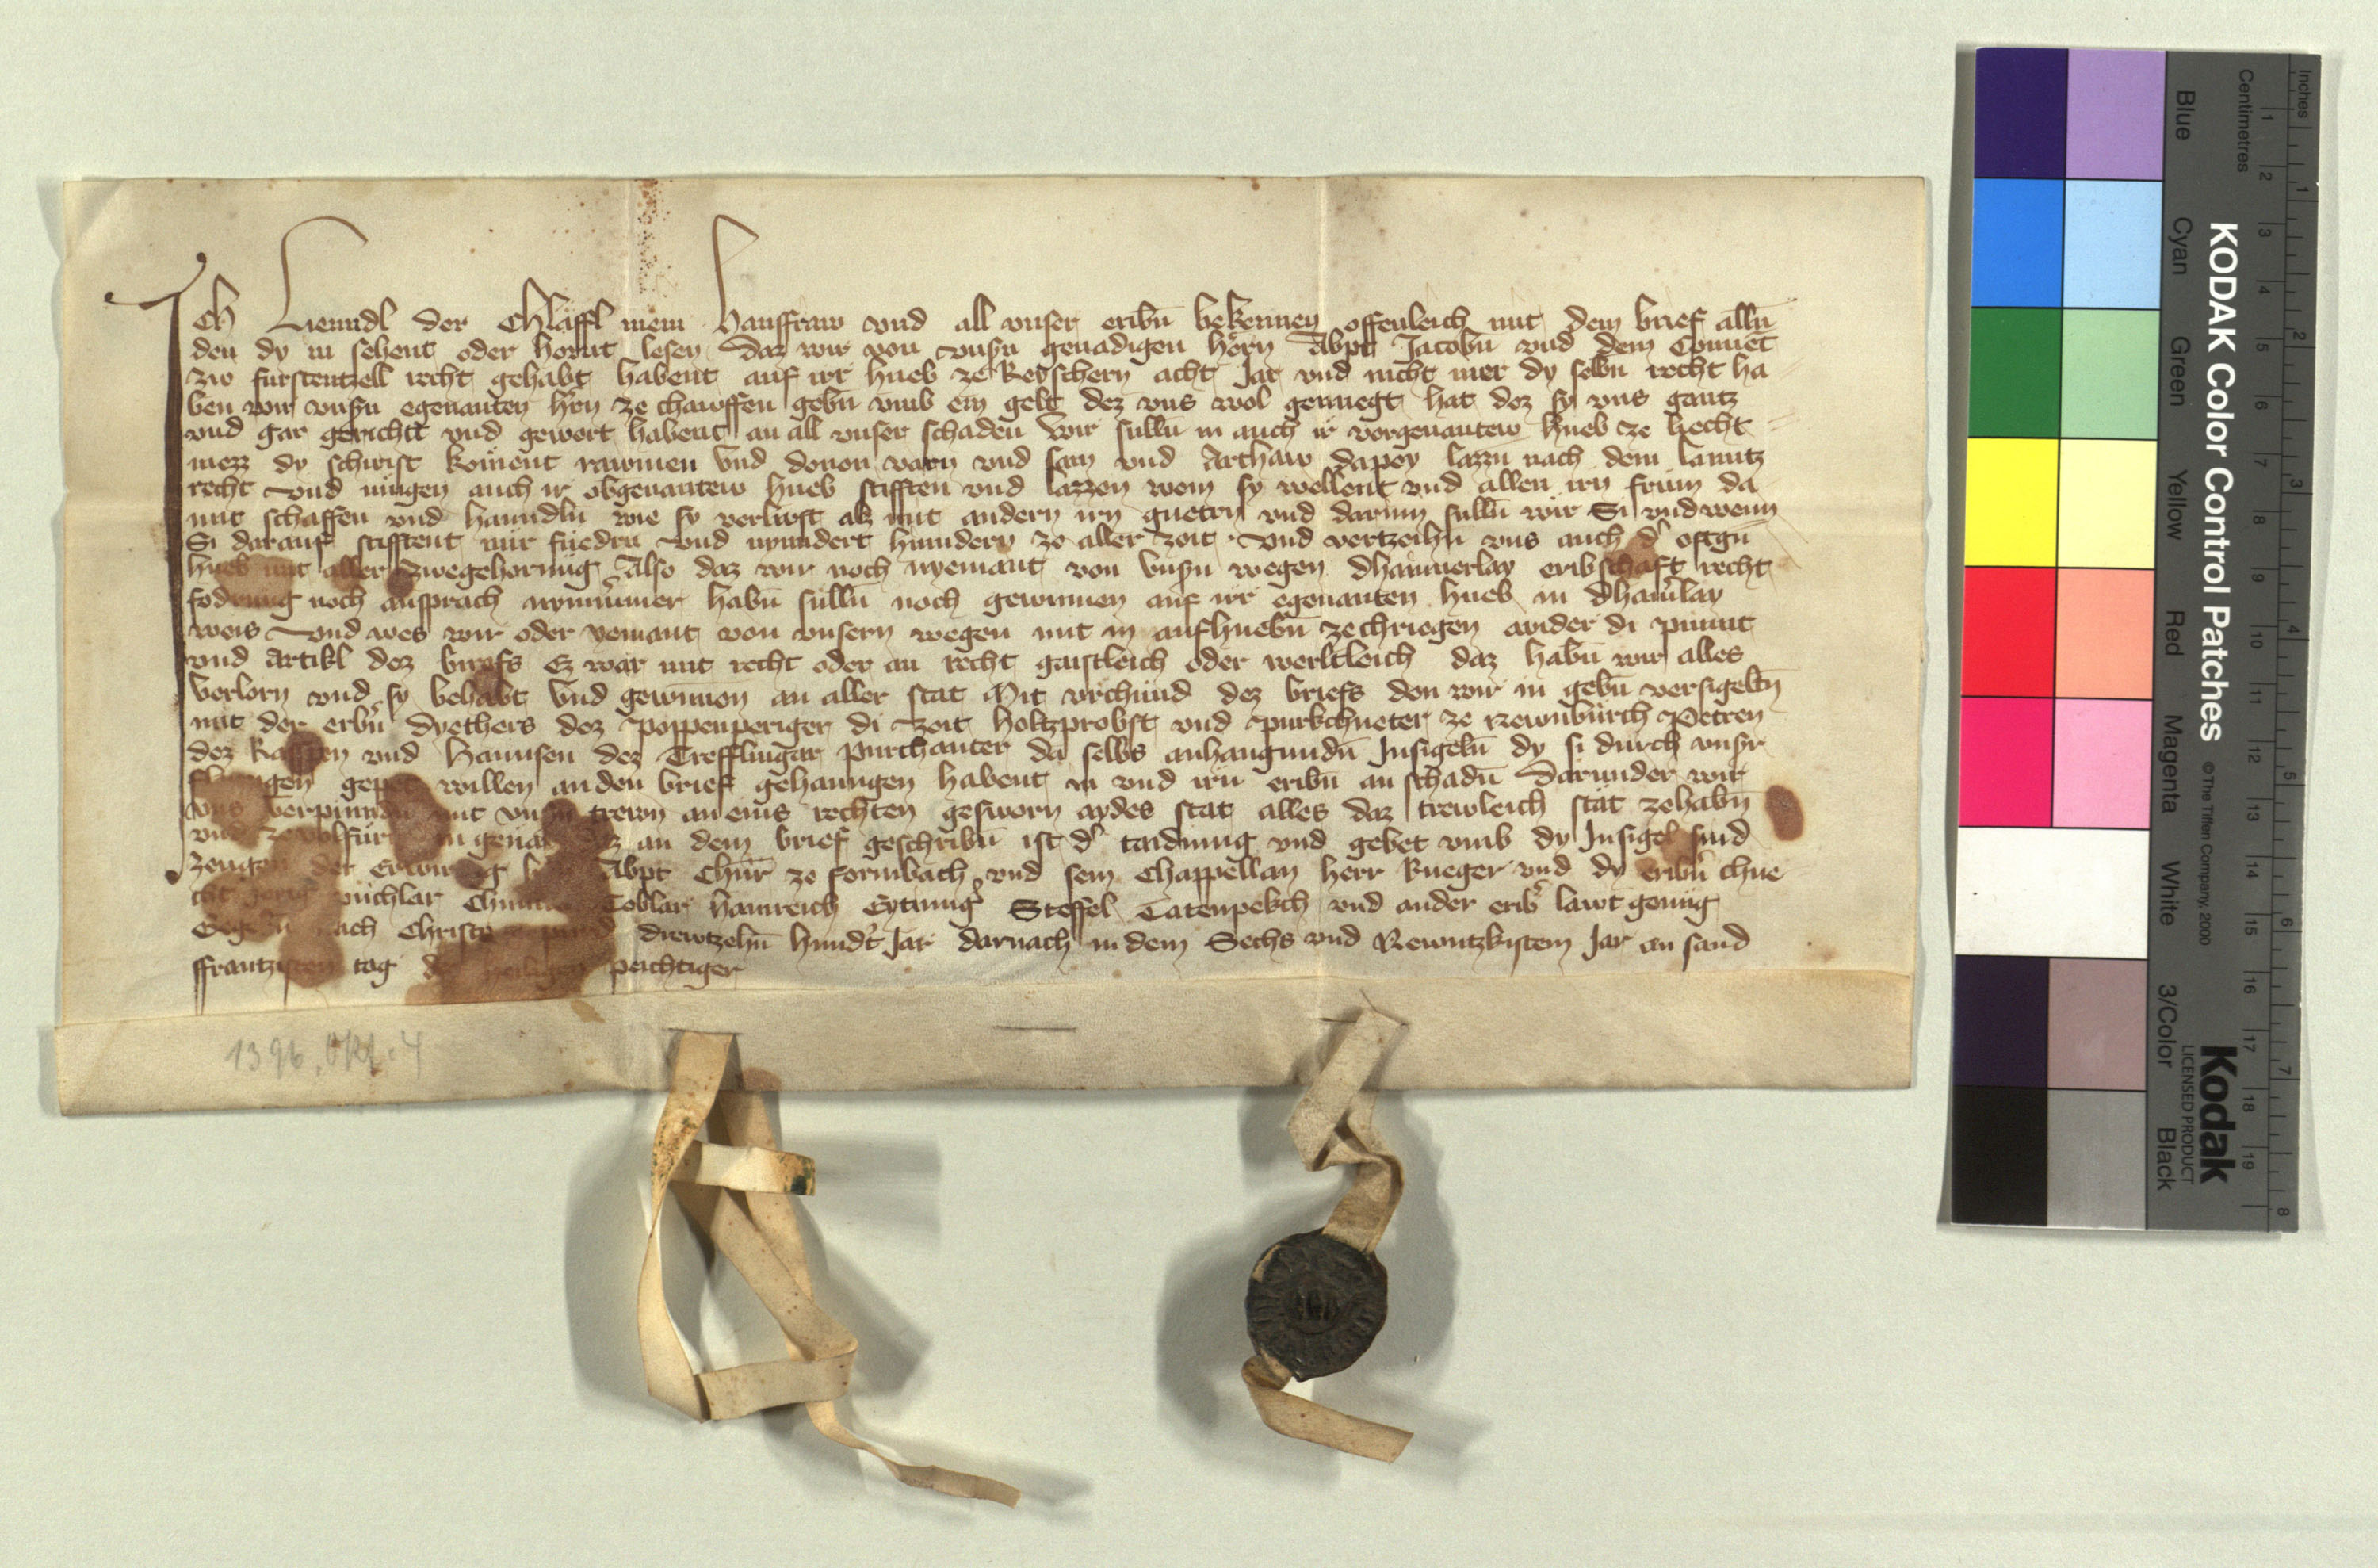 Ich Lienndl der Chläffl mein hausfraw vnd all vnser eribn̄ bekennen offenleich mit dem brief alln̄
den dy in sehent oder hornt lesen daz wir von vnsn̄ genadigen hern Abpt Jacobn̄ vnd dem Conuēt
zw furstentzell recht gehabt habent auf irr hueb ze Retschern acht Jar vnd nicht mer dy selbn̄ recht ha
ben wir vnsn̄ egenanten hr̄n ze chawffen gebn̄ vmb ein gelt dez vns wol genuegt hat dez sy vns gantz
vnd gar gericht vnd gewert habent an all vnser schaden wir sulln̄ in auch ir vorgenantew hueb ze liecht
mezz dy schirist koment rawmen vnd douon varn vnd san vnd Arthaw dapey lazzn nach dem lanntz
recht vnd mugen auch ir obgenantew hueb stifften vnd lazzen wem sy wellent vnd allen irn frum da
mit schaffen vnd hanndln̄ wie sy verlust als mit andern irn guetern vnd darum sulln̄ wir Si vnd wenn
Si darauf stifftent nur fuedrn vnd nynndert hinndern ze aller zeit vnd vertzeihn̄ vns auch d' oftgn̄
hueb mit aller zwegehorung Also daz wir noch nyemant von vnsn̄ wegen dhainnerlay eribschaft recht
fodrung noch ansprach nymmer habn̄ sulln̄ noch gewinnen auf irr egenanten hueb in dhain'lay
weis vnd wes wir oder yemant von vnsern wegen mit in anfhuebn̄ zechriegen wider di punnt
vnd Artikl dez briefs Ez war mit recht oder an recht gaistleich oder werltleich daz habn̄ wir alles
verlorn vnd sy behabt vnd gewunnen an aller stat Mit vrchund dez briefs den wir in gebn̄ versigeltn̄
mit der erbn̄ dyethers dez Poppenperiger di zeit holtzprobst vnd purkchueter ze Newnburch Petren
dez Raspen vnd hannsen dez Trefflingar purchauter da selbs anhangundn̄ Insigeln̄ dy si durch vnsr
gepet willen an den brief gehanngen habent in vnd irn̄ eribn̄ an schadn̄ darunder wir
vns verpinden mit vnsn̄ trewn an eins rechten gesworn aydes stat alles daz trewleich stät zehabn̄
vnd an dem brief geschribn̄ ist d' taidung vnd gebet vmb dy Insigel sind
zeugen der Erwirdig Abpt Chūr ze formbach vnd sein Chappellan herr Rueger vnd dy eribn̄ chne
puchlar Toblar hainreich Eytning' Steffel Tatenpekch vnd ander erib' lawt genug
Gegebn̄ nach Christi purd diewtzehn̄ hundt Jar darnach in dem Sechs vnd Newntzkistem Jar an sand
ffrantzisten tag dez heiligen peichtiger
1396. Okt. 4
KODAK Color Control Patches
© The Tiffen Company, 2000
Kodak
LICENSED PRODUCT
Blue Cyan Green Yellow Red Magenta White 3/Color Black
Inches 1 2 3 4 5 6 7 8
Centimetres 1 2 3 4 5 6 7 8 9 10 11 12 13 14 15 16 17 18 19